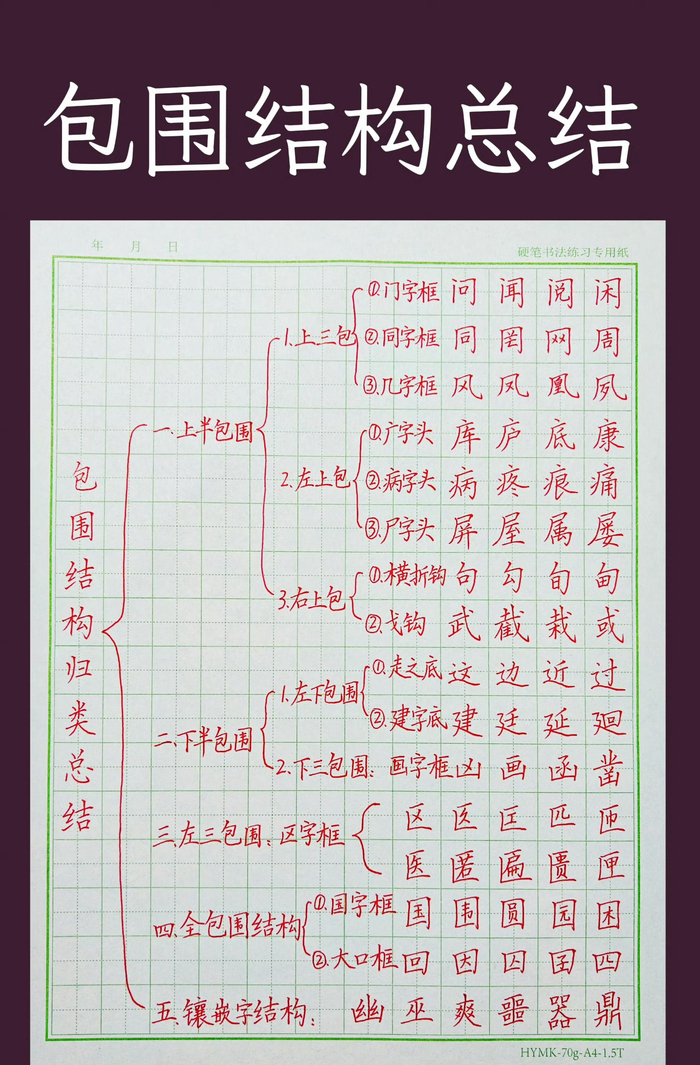 包围结构总结
年 月 日
硬笔书法练习专用纸
包围结构归类总结
一.上半包围
1.上三包
①.门字框 问 闻 阅 闲
②.同字框 同 罔 网 周
③.几字框 风 凤 凰 夙
2.左上包
①.广字头 库 庐 底 康
②.病字头 病 疼 痕 痛
③.尸字头 屏 屋 属 屡
3.右上包
①.横折钩 句 勾 旬 甸
②.戈钩 武 截 栽 或
二.下半包围
1.左下包围
①.走之底 这 边 近 过
②.建字底 建 廷 延 廻
2.下三包围：画字框 凶 画 函 凿
三.左三包围：区字框
区 医 匡 匹 匝
医 匿 匾 匮 匣
四.全包围结构
①.国字框 国 围 圆 园 困
②.大口框 回 因 囚 囯 四
五.镶嵌字结构： 幽 巫 爽 噩 器 鼎
HYMK-70g-A4-1.5T